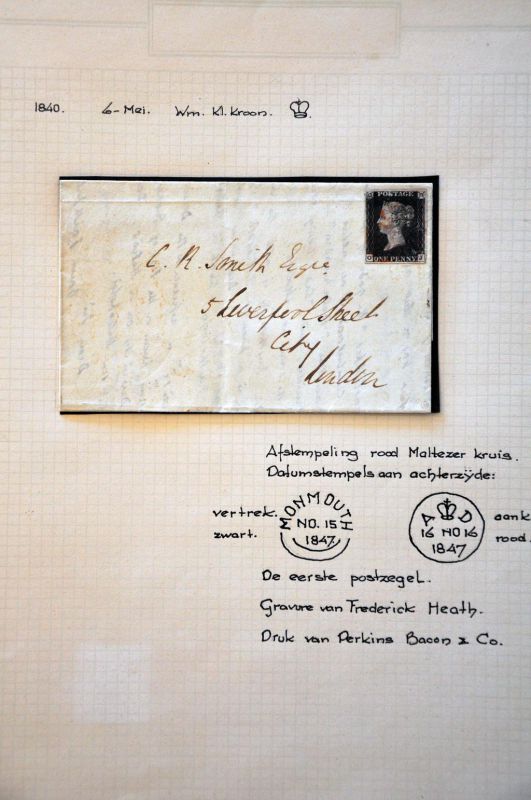 1840. 6-Mei. Wm. Kl. Kroon.
POSTAGE
ONE PENNY
G. R. Smith Esqre
5 Liverpool Street
City
London
Afstempeling rood Maltezer kruis.
Datumstempels aan achterzijde:
vertrek.
zwart.
MONMOUTH
NO. 15
1847.
A D
16 NO 16
1847
aank
rood.
De eerste postzegel.
Gravure van Frederick Heath.
Druk van Perkins Bacon & Co.